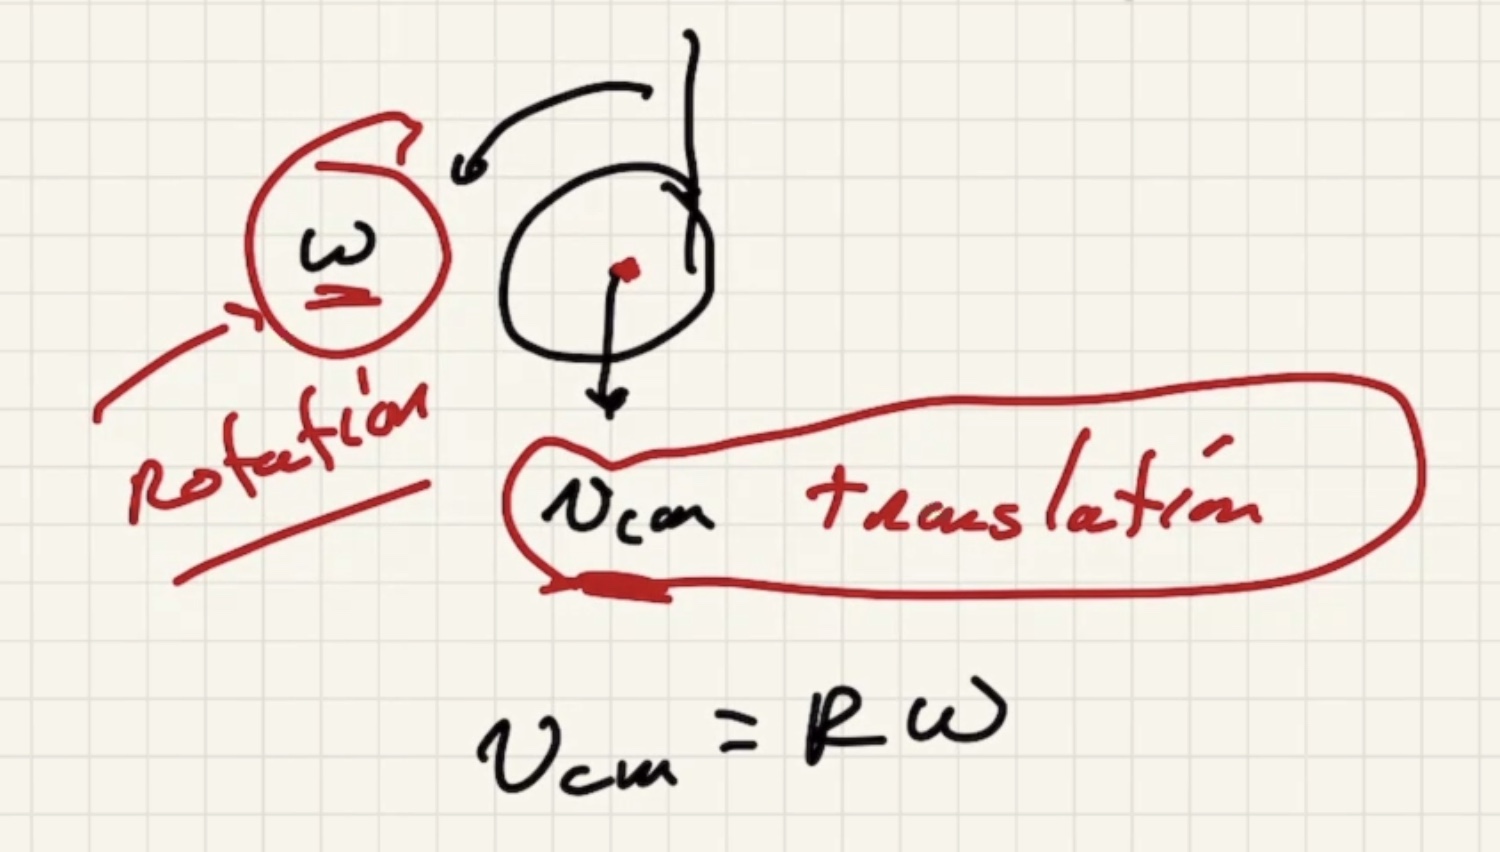 ω
Rotación
v_cm translatión
v_cm = R ω